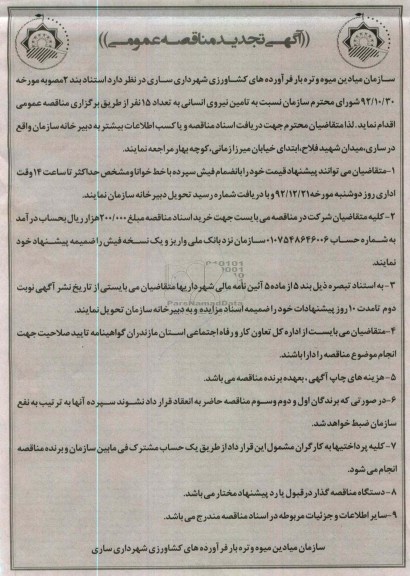 ((آگهی تجدید مناقصه عمومی))
سازمان میادین میوه و تره بار فرآورده های کشاورزی شهرداری ساری در نظر دارد استناد بند ۲ مصوبه مورخه
۹۲/۱۰/۳۰ شورای محترم سازمان نسبت به تامین نیروی انسانی به تعداد ۱۵ نفر از طریق برگزاری مناقصه عمومی
اقدام نماید. لذا متقاضیان محترم جهت دریافت اسناد مناقصه و یا کسب اطلاعات بیشتر به دبیرخانه سازمان واقع
در ساری، میدان شهید فلاح، ابتدای خیابان میرزا زمانی، کوچه بهار مراجعه نمایند.
۱- متقاضیان می توانند پیشنهاد قیمت خود را با انضمام فیش سپرده با خط خوانا و مشخص حداکثر تا ساعت ۱۴ وقت
اداری روز دوشنبه مورخه ۹۲/۱۲/۲۱ و با دریافت شماره رسید تحویل دبیرخانه سازمان نمایند.
۲- کلیه متقاضیان شرکت در مناقصه می بایست جهت خرید اسناد مناقصه مبلغ ۲۰۰/۰۰۰ هزار ریال بحساب درآمد
به شماره حساب ۰۱۰۷۵۴۸۶۴۶۰۰۶ سازمان نزد بانک ملی واریز و یک نسخه فیش را ضمیمه پیشنهاد خود
نمایند.
۳- به استناد تبصره ذیل بند ۵ از ماده ۵ آئین نامه مالی شهرداریها متقاضیان می بایستی از تاریخ نشر آگهی نوبت
دوم تا مدت ۱۰ روز پیشنهادات خود را ضمیمه اسناد مزایده و به دبیرخانه سازمان تحویل نمایند.
۴- متقاضیان می بایست از اداره کل تعاون کار و رفاه اجتماعی استان مازندران گواهینامه تایید صلاحیت جهت
انجام موضوع مناقصه را دارا باشند.
۵- هزینه های چاپ آگهی، بعهده برنده مناقصه می باشد.
۶- در صورتی که برندگان اول و دوم و سوم مناقصه حاضر به انعقاد قرارداد نشوند سپرده آنها به ترتیب به نفع
سازمان ضبط خواهد شد.
۷- کلیه پرداختیها به کارگران مشمول این قرارداد از طریق یک حساب مشترک فی مابین سازمان و برنده مناقصه
انجام می شود.
۸- دستگاه مناقصه گذار در قبول یا رد پیشنهاد مختار می باشد.
۹- سایر اطلاعات و جزئیات مربوطه در اسناد مناقصه مندرج می باشد.
سازمان میادین میوه و تره بار فرآورده های کشاورزی شهرداری ساری
ParsNamadData